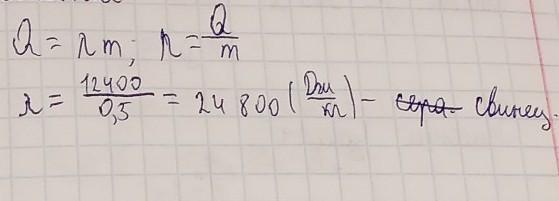 Q = λm; λ = Q/m
λ = 12400/0,5 = 24 800 (Дж/кг) - ~~сера~~ свинец.